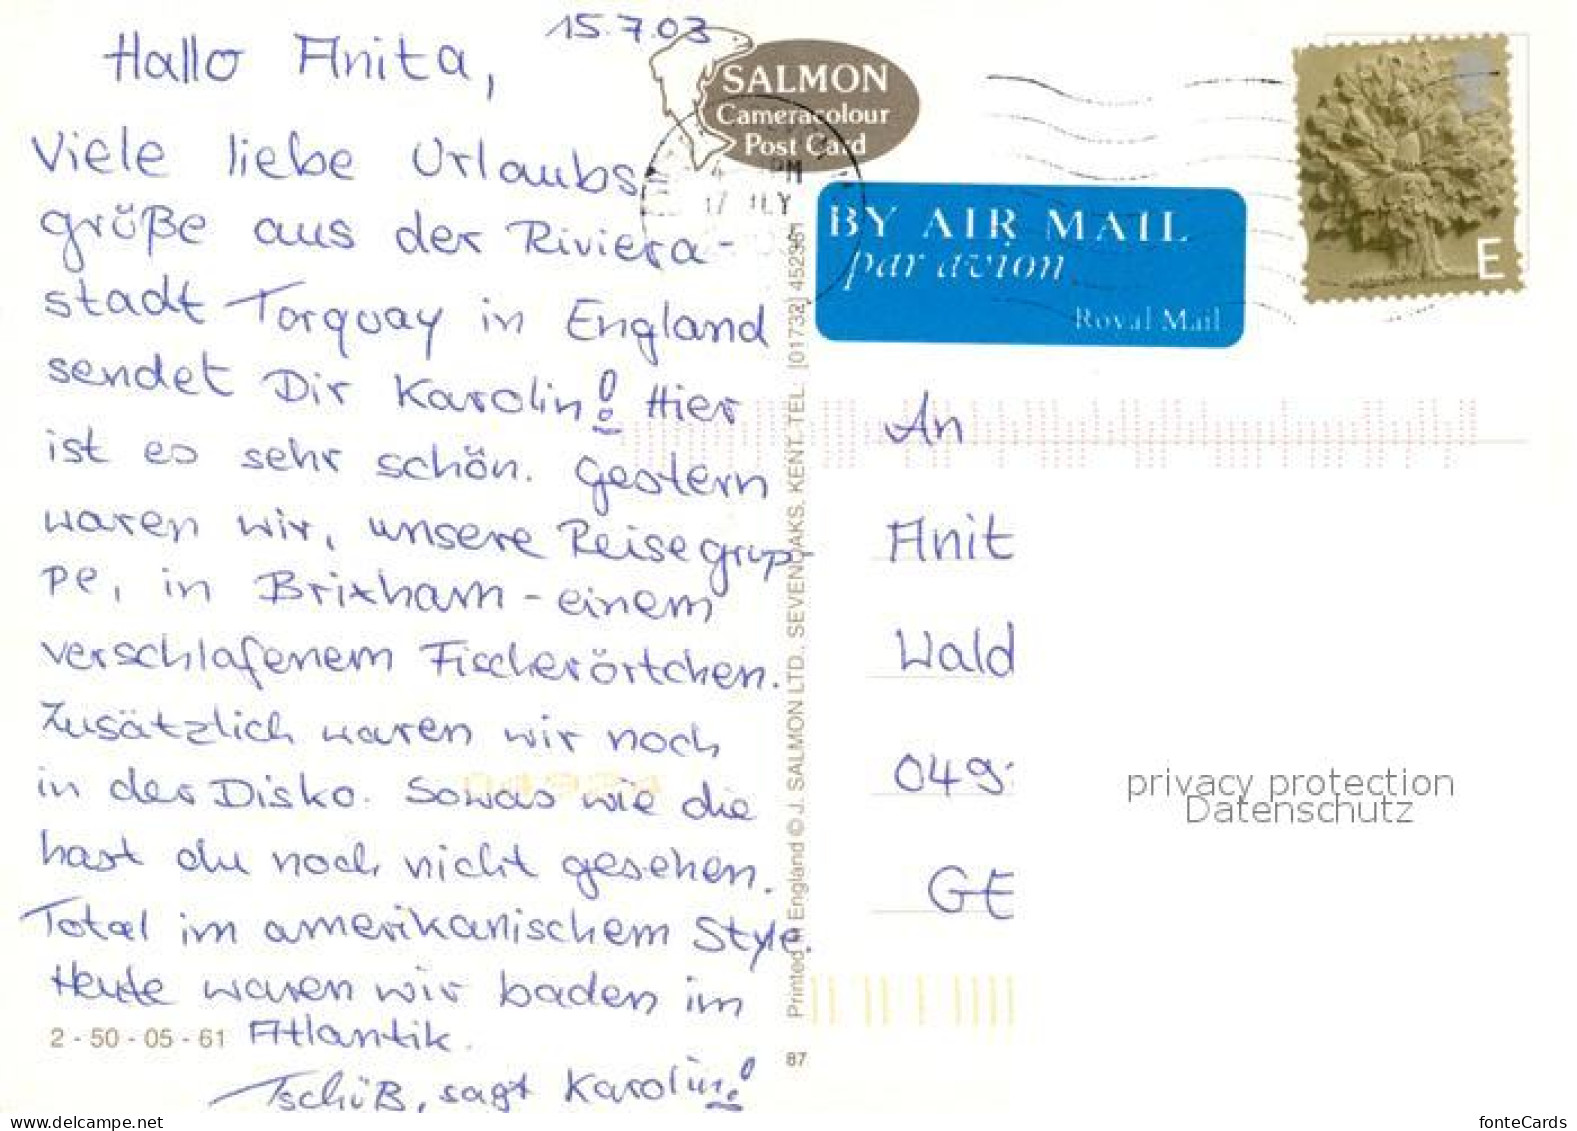 15.7.03
Hallo Anita,
Viele liebe Urlaubs
grüße aus der Riviera-
stadt Torquay in England
sendet Dir Karolin! Hier
ist es sehr schön. Gestern
waren wir, unsere Reisegrup-
pe, in Brixham - einem
verschlafenem Fischerörtchen.
Zusätzlich waren wir noch
in der Disko. Sowas wie die
hast du noch nicht gesehen.
Total im amerikanischem Style.
Heute waren wir baden im
Atlantik.
Tschüß, sagt Karolin!
2 - 50 - 05 - 61
SALMON
Cameracolour
Post Card
PM
17 JLY
Printed in England © J. SALMON LTD., SEVENOAKS, KENT. TEL: [01732] 452381
87
BY AIR MAIL
par avion
Royal Mail
E
An
Anit
Wald
049
GE
privacy protection
Datenschutz
www.delcampe.net
fonteCards